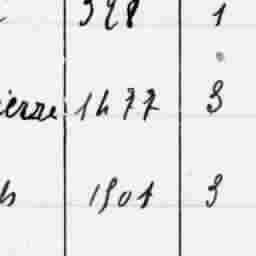 398 1
ierre 1477 3
1501 3